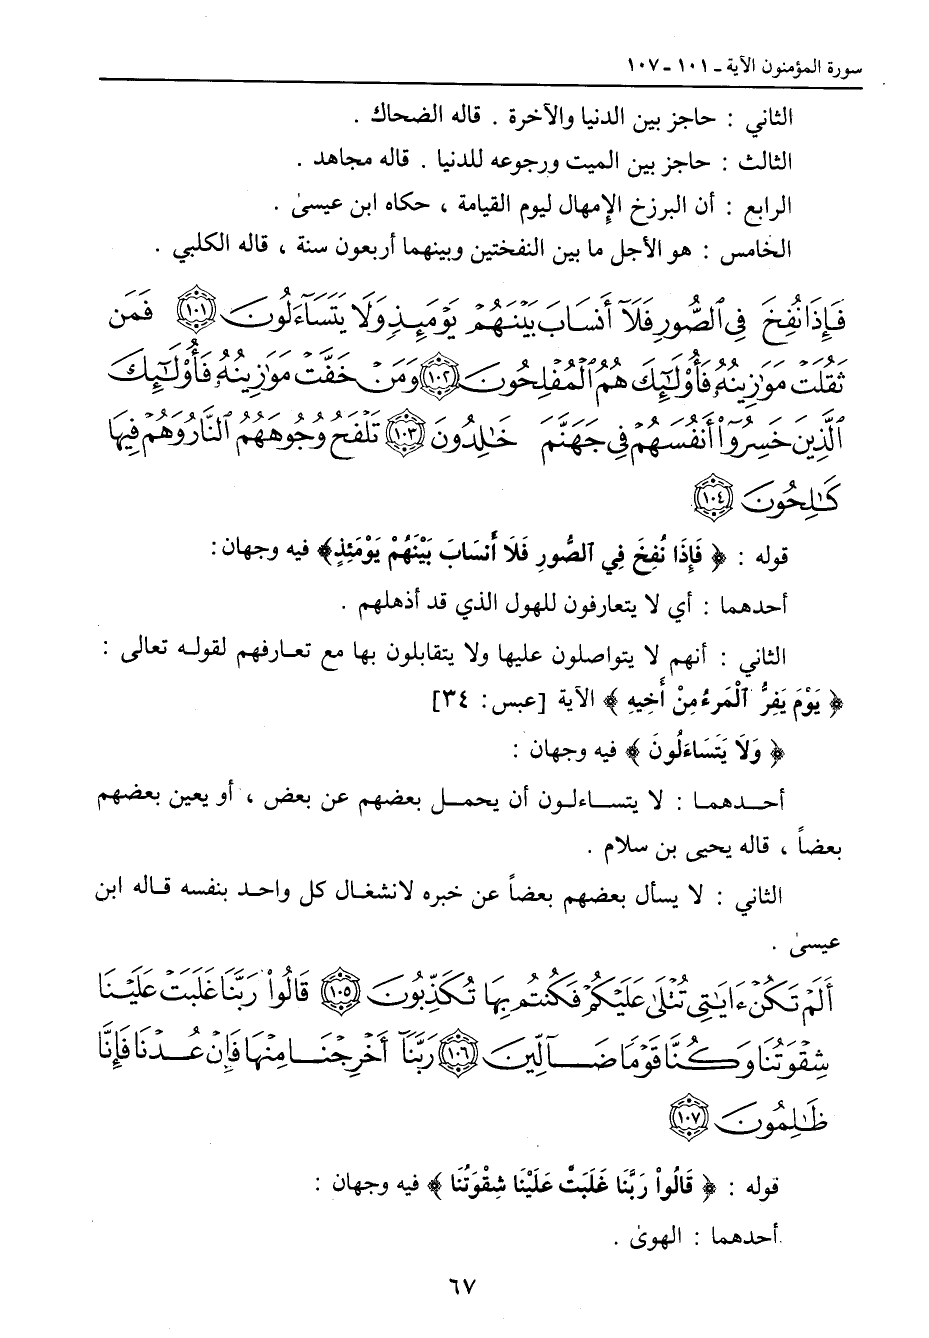 سورة المؤمنون الآية ـ ١٠١ ـ ١٠٧
الثاني : حاجز بين الدنيا والآخرة . قاله الضحاك .
الثالث : حاجز بين الميت ورجوعه للدنيا . قاله مجاهد .
الرابع : أن البرزخ الإمهال ليوم القيامة ، حكاه ابن عيسىٰ .
الخامس : هو الأجل ما بين النفختين وبينهما أربعون سنة ، قاله الكلبي .
فَإِذَا نُفِخَ فِي ٱلصُّورِ فَلَآ أَنسَابَ بَيْنَهُمْ يَوْمَئِذٍ وَلَا يَتَسَآءَلُونَ ١٠١ فَمَن
ثَقُلَتْ مَوَٰزِينُهُۥ فَأُوْلَٰٓئِكَ هُمُ ٱلْمُفْلِحُونَ ١٠٢ وَمَنْ خَفَّتْ مَوَٰزِينُهُۥ فَأُوْلَٰٓئِكَ
ٱلَّذِينَ خَسِرُوٓا۟ أَنفُسَهُمْ فِي جَهَنَّمَ خَٰلِدُونَ ١٠٣ تَلْفَحُ وُجُوهَهُمُ ٱلنَّارُ وَهُمْ فِيهَا
كَٰلِحُونَ ١٠٤
قوله : ﴿ فَإِذَا نُفِخَ فِي ٱلصُّورِ فَلَا أَنسَابَ بَيْنَهُمْ يَوْمَئِذٍ﴾ فيه وجهان:
أحدهما : أي لا يتعارفون للهول الذي قد أذهلهم .
الثاني : أنهم لا يتواصلون عليها ولا يتقابلون بها مع تعارفهم لقوله تعالى :
﴿ يَوْمَ يَفِرُّ ٱلْمَرْءُ مِنْ أَخِيهِ ﴾ الآية [عبس: ٣٤]
﴿ وَلَا يَتَسَاءَلُونَ ﴾ فيه وجهان :
أحدهما : لا يتساءلون أن يحمل بعضهم عن بعض ، أو يعين بعضهم
بعضاً ، قاله يحيى بن سلام .
الثاني : لا يسأل بعضهم بعضاً عن خبره لانشغال كل واحد بنفسه قاله ابن
عيسىٰ .
أَلَمْ تَكُنْ ءَايَٰتِي تُتْلَىٰ عَلَيْكُمْ فَكُنتُم بِهَا تُكَذِّبُونَ ١٠٥ قَالُوا۟ رَبَّنَا غَلَبَتْ عَلَيْنَا
شِقْوَتُنَا وَكُنَّا قَوْمًا ضَآلِّينَ ١٠٦ رَبَّنَآ أَخْرِجْنَا مِنْهَا فَإِنْ عُدْنَا فَإِنَّا
ظَٰلِمُونَ ١٠٧
قوله : ﴿ قَالُوا۟ رَبَّنَا غَلَبَتْ عَلَيْنَا شِقْوَتُنَا ﴾ فيه وجهان :
أحدهما : الهوىٰ .
٦٧